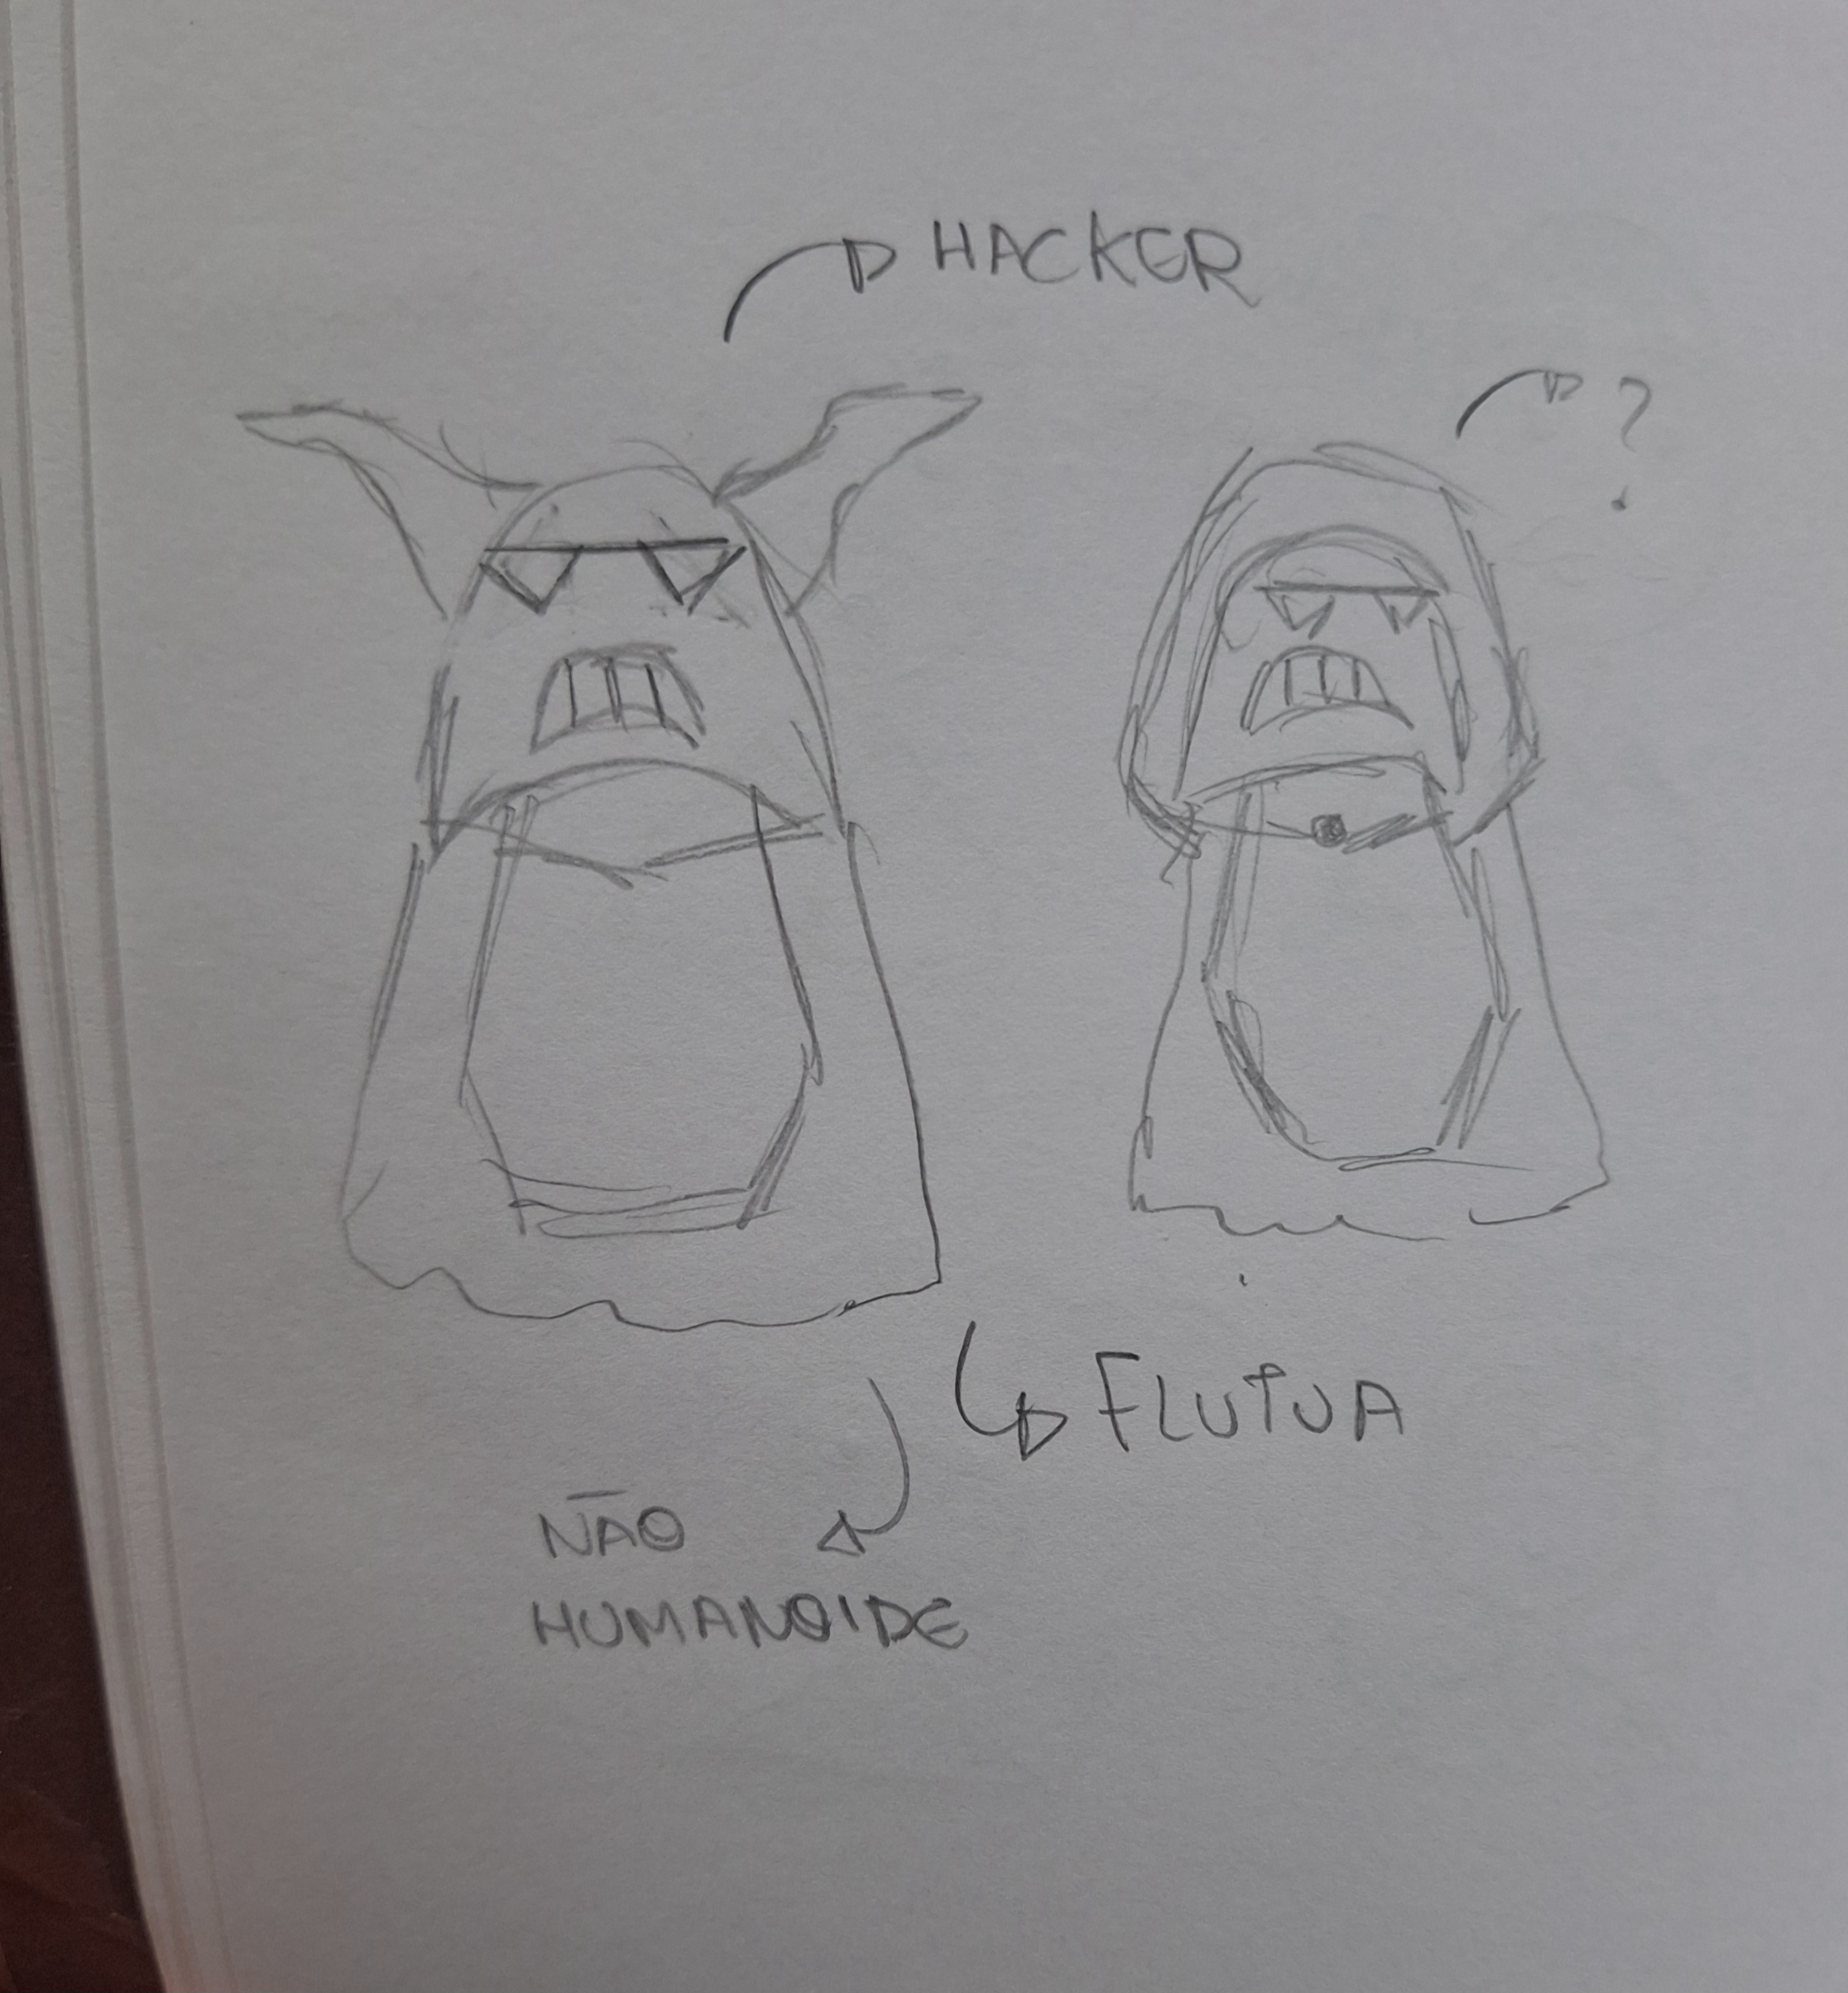 HACKER
?
FLUTUA
NÃO
HUMANOIDE